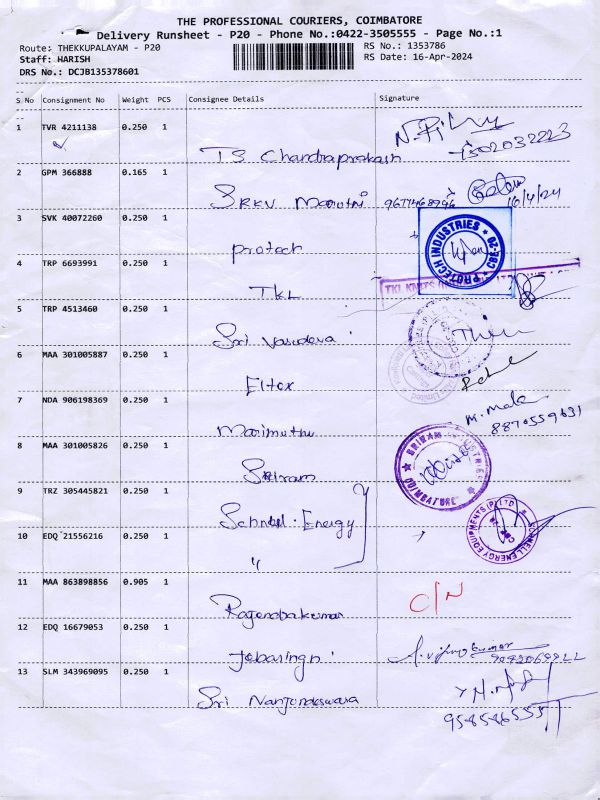 THE PROFESSIONAL COURIERS, COIMBATORE
Delivery Runsheet - P20 - Phone No.:0422-3505555 - Page No.:1
Route: THEKKUPALAYAM - P20 RS No.: 1353786
Staff: HARISH RS Date: 16-Apr-2024
DRS No.: DCJB135378601
S No Consignment No Weight PCS Consignee Details Signature
1 TVR 4211138 0.250 1
TS Chandraprakash
2 GPM 366888 0.165 1
SRKV Maruthi 9677468796 16/4/24
3 SVK 40072260 0.250 1
protech PROTECH INDUSTRIES CBE-20
4 TRP 6693991 0.250 1
TKL TKL KNITS
5 TRP 4513460 0.250 1
Sri Vasudeva
6 MAA 301005887 0.250 1
Eltex
7 NDA 906198369 0.250 1
Marimuthu M. Mala
8870559631
8 MAA 301005826 0.250 1
Sriram SRIRAM INDUSTRIES COIMBATORE
9 TRZ 305445821 0.250 1
Schnell Energy SCHNELL ENERGY EQUIPMENTS (P) LTD
10 EDQ 21556216 0.250 1
"
11 MAA 863898856 0.905 1
C/N
Rajendrakumar
12 EDQ 16679053 0.250 1
Jebasingh
13 SLM 343969095 0.250 1
Sri Nanjundeswara